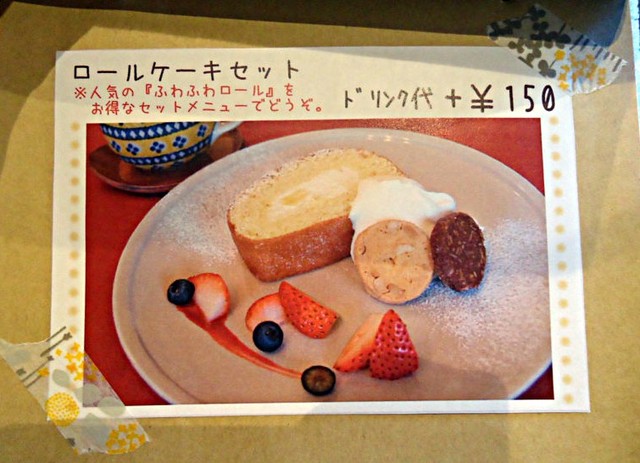 ロールケーキセット
※人気の『ふわふわロール』を
お得なセットメニューでどうぞ。
ドリンク代 + ¥150